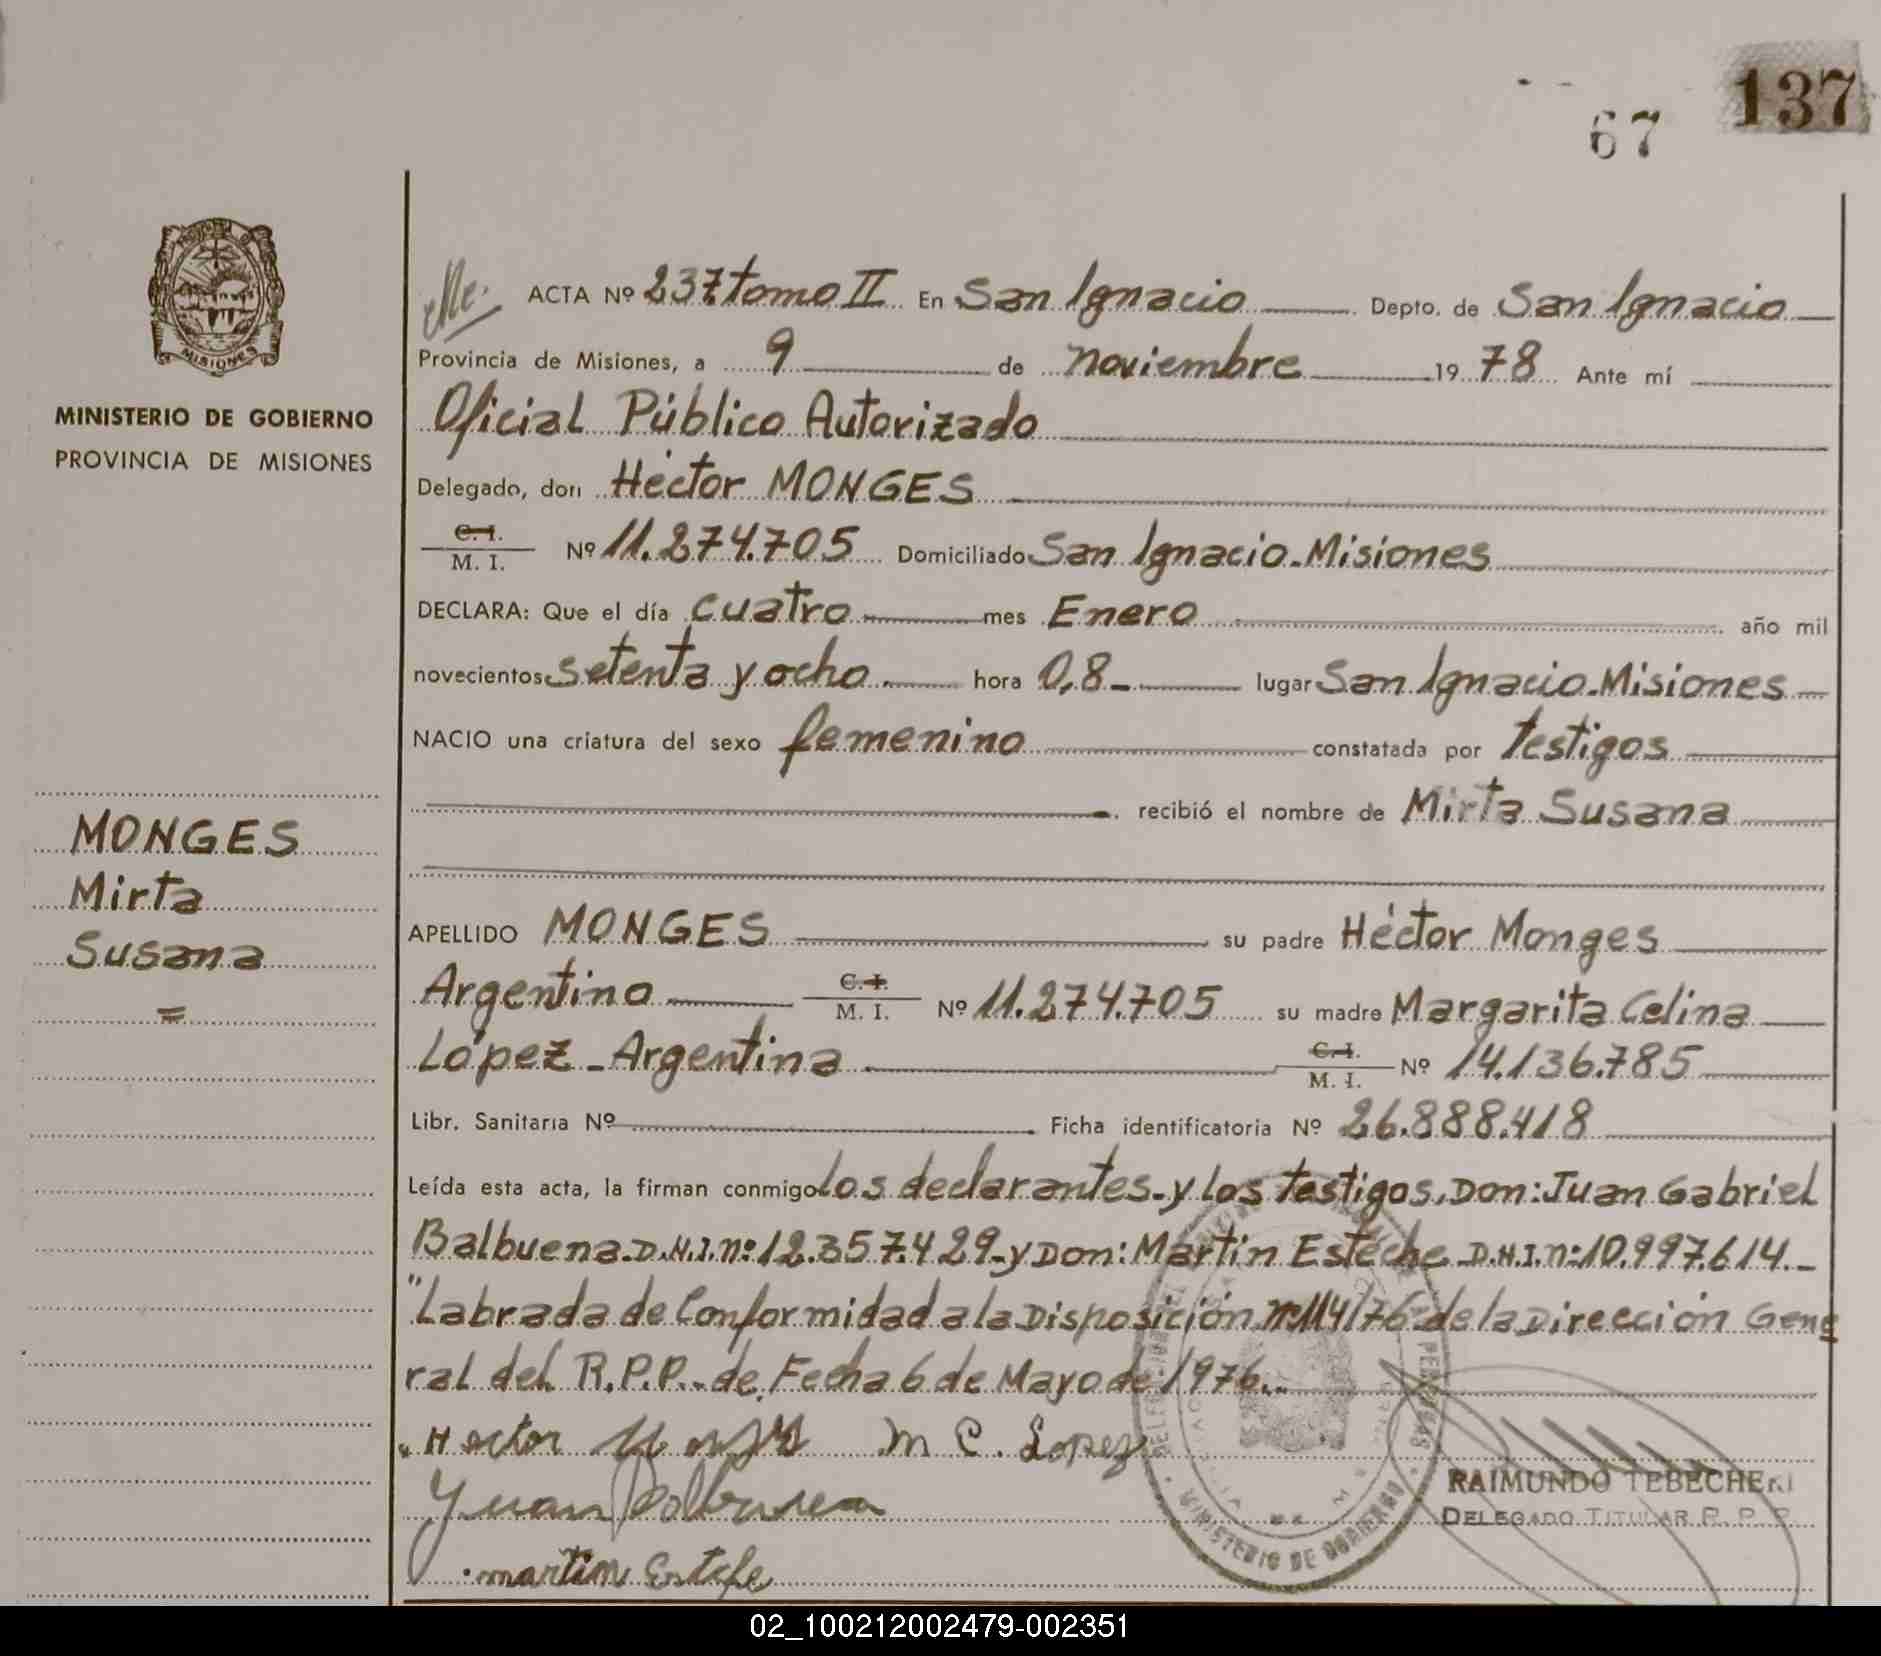 137
67
ACTA Nº 237 tomo II En San Ignacio Depto. de San Ignacio
Provincia de Misiones, a 9 de noviembre 1978 Ante mí
Oficial Público Autorizado
Delegado, don Héctor MONGES
C. I.
M. I. Nº 11.274.705 Domiciliado San Ignacio-Misiones
DECLARA: Que el día cuatro mes Enero año mil
novecientos setenta y ocho hora 0,8 lugar San Ignacio-Misiones
NACIO una criatura del sexo femenino constatada por testigos
recibió el nombre de Mirta Susana
APELLIDO MONGES su padre Héctor Monges
Argentino C. I. M. I. Nº 11.274.705 su madre Margarita Celina
López - Argentina C. I. M. I. Nº 14.136.785
Libr. Sanitaria Nº Ficha identificatoria Nº 26.888.418
Leída esta acta, la firman conmigo los declarantes-y los testigos, Don: Juan Gabriel
Balbuena-D.N.I.nº:12.357.429-y Don: Martin Esteche-D.N.I.n:10.997.614.-
"Labrada de Conformidad a la Disposición nº 114/76 de la Dirección Gene
ral del R.P.P.-de Fecha 6 de Mayo de 1976.-
Hector M C. Lopez
Juan Balbuena
martin
MISIONES
MINISTERIO DE GOBIERNO
PROVINCIA DE MISIONES
MONGES
Mirta
Susana
=
MINISTERIO DE GOBIERNO
RAIMUNDO TEBECHERI
DELEGADO TITULAR R. P. P.
02_100212002479-002351